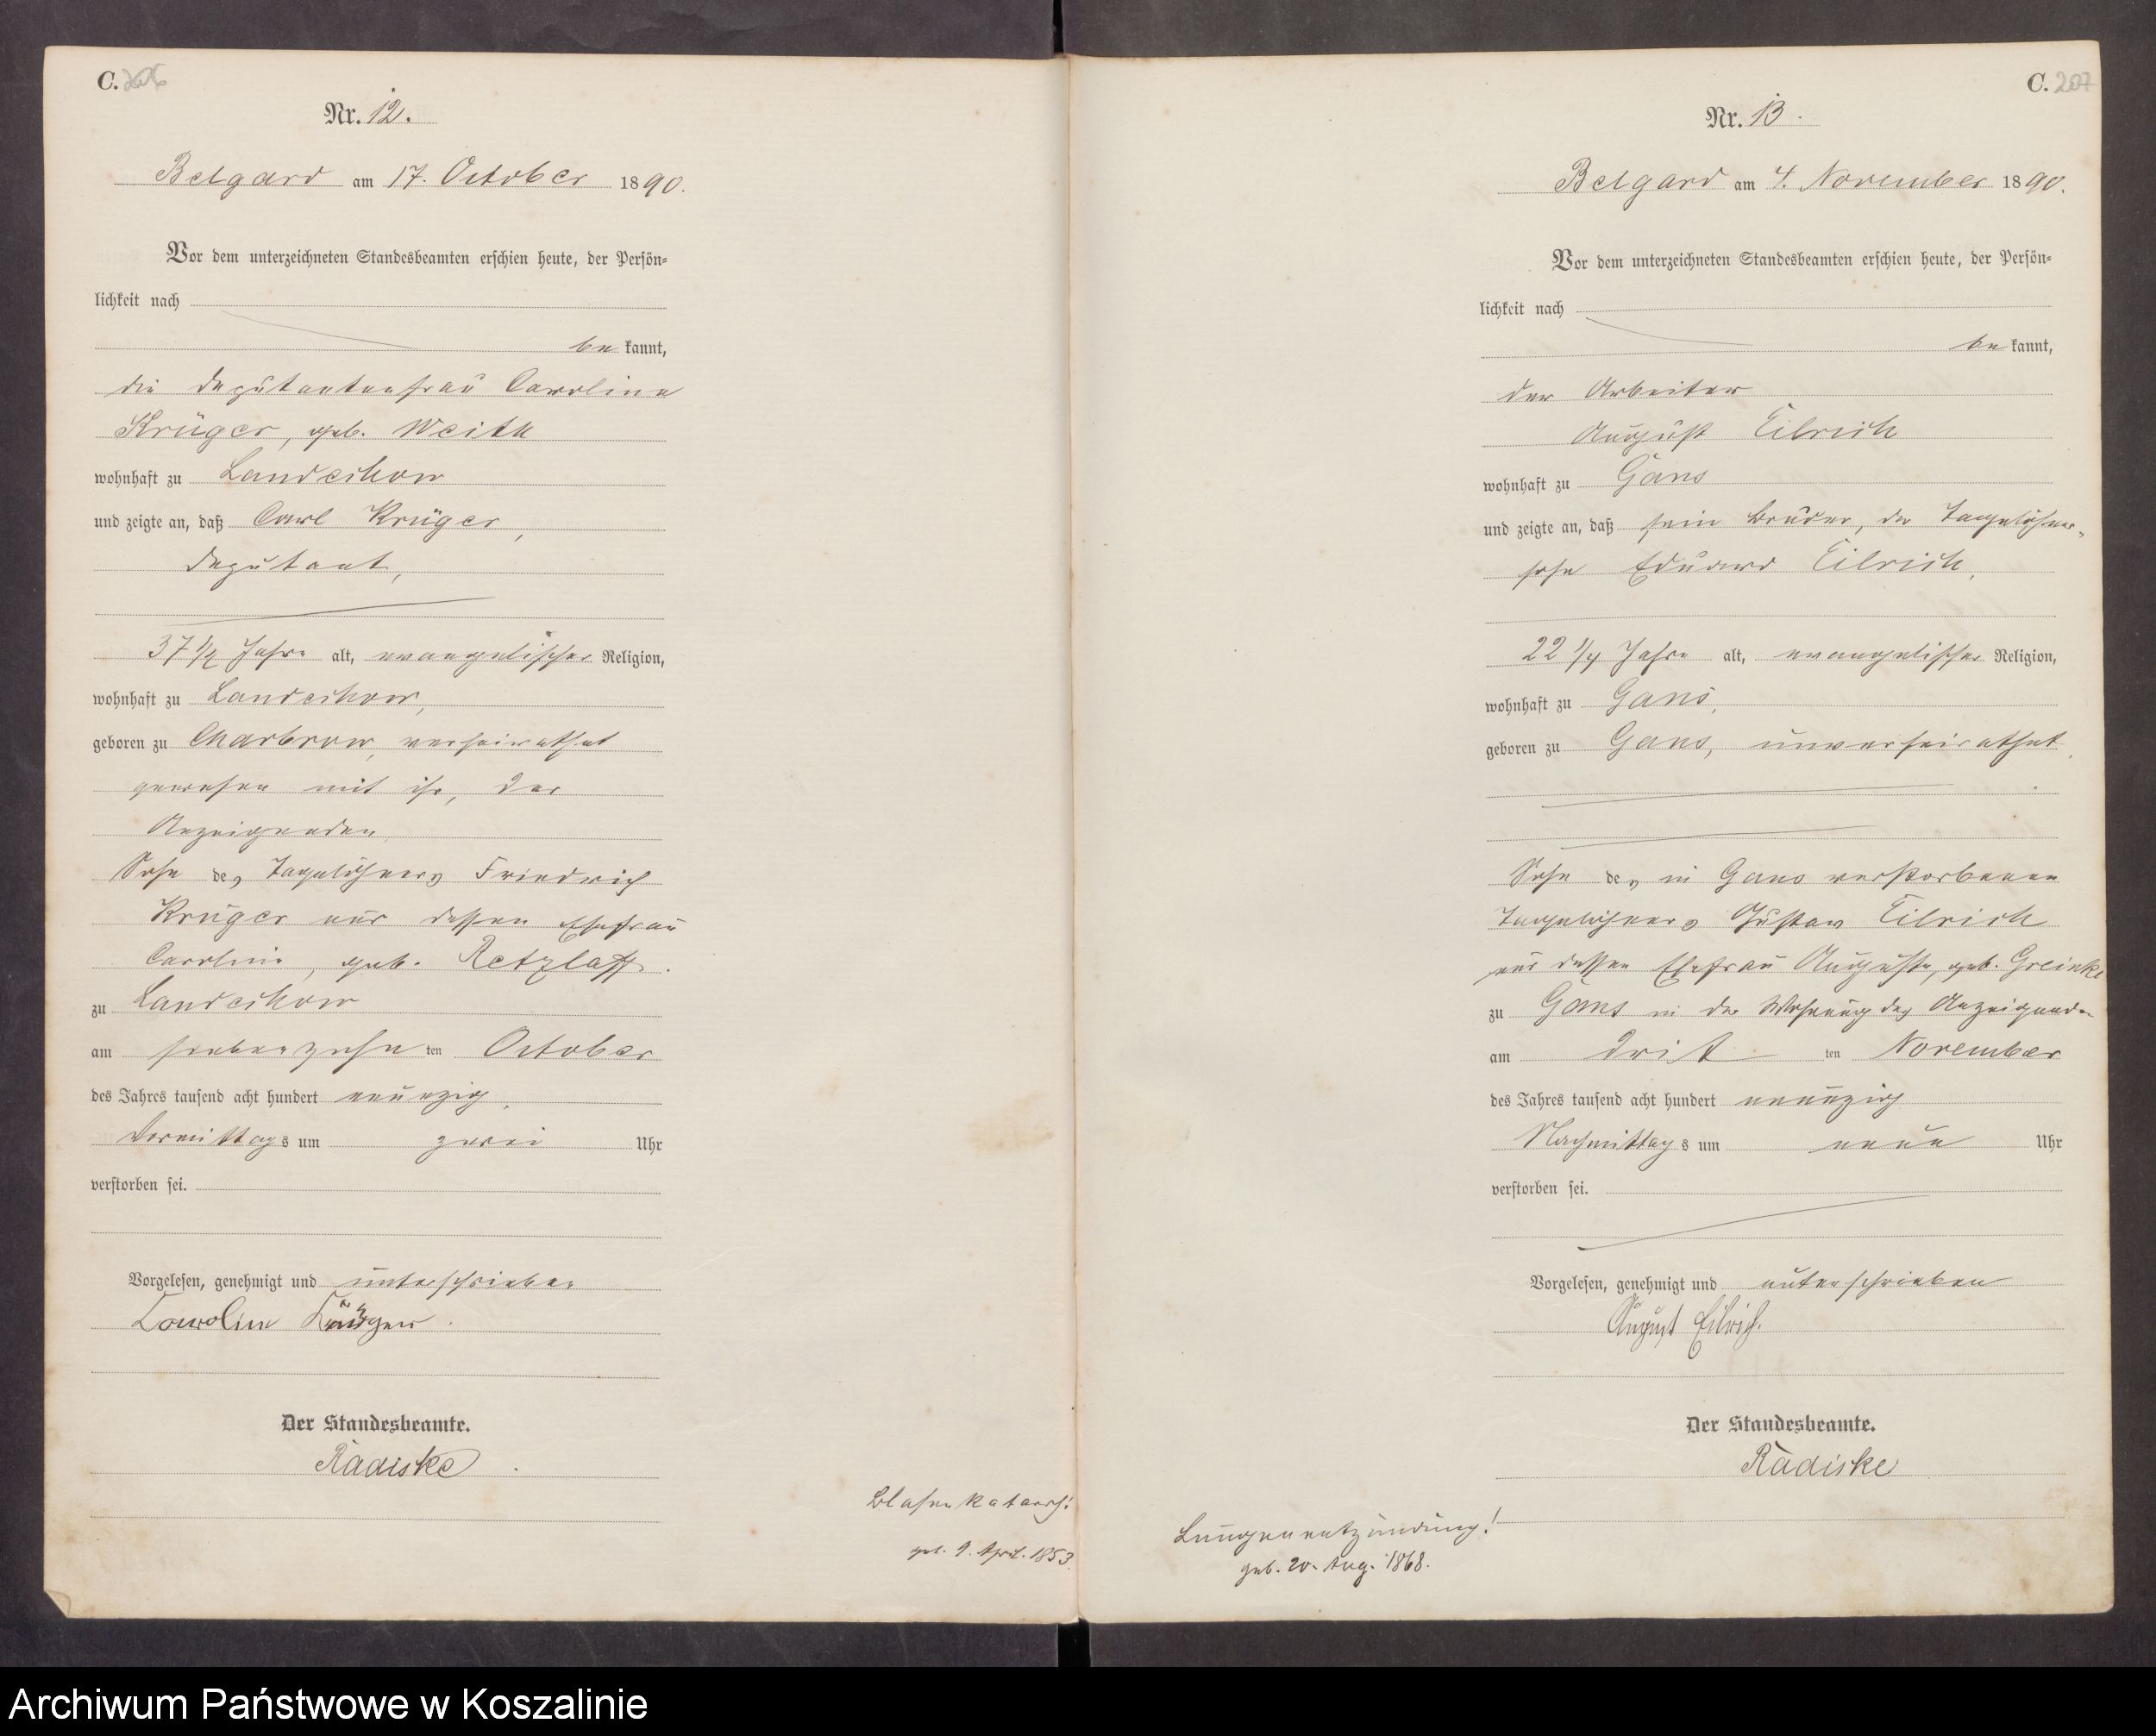 C. 206
Nr. 12.
Belgard am 17. October 1890.
Vor dem unterzeichneten Standesbeamten erschien heute, der Persön-
lichkeit nach
be kannt,
die Deputantenfrau Caroline
Krüger, geb. Weith
wohnhaft zu Landechow
und zeigte an, daß Carl Krüger,
Deputant,
37 1/2 Jahre alt, evangelischer Religion,
wohnhaft zu Landechow,
geboren zu Charbrow, verheirathet
gewesen mit ihr, der
Anzeigenden
Sohn des Tagelöhners Friedrich
Krüger und dessen Ehefrau
Caroline, geb. Retzlaff.
zu Landechow
am siebenzehn ten October
des Jahres tausend acht hundert neunzig,
Vormittags um zwei Uhr
verstorben sei.
Vorgelesen, genehmigt und unterschrieben
Carolin Krüger.
Der Standesbeamte.
Radiske
Blasenkatarrh!
geb. 9. April. 1853.
C. 207
Nr. 13.
Belgard am 4. November 1890.
Vor dem unterzeichneten Standesbeamten erschien heute, der Persön-
lichkeit nach
be kannt,
der Arbeiter
August Eilrich
wohnhaft zu Gans
und zeigte an, daß sein Bruder, der Tagelöhner-
sohn Eduard Eilrich,
22 1/4 Jahre alt, evangelischer Religion,
wohnhaft zu Gans,
geboren zu Gans, unverheirathet,
Sohn des in Gans verstorbenen
Tagelöhners Gustav Eilrich
und dessen Ehefrau Auguste, geb. Greinke
zu Gans in der Wohnung des Anzeigenden
am drit ten November
des Jahres tausend acht hundert neunzig
Nachmittags um neun Uhr
verstorben sei.
Vorgelesen, genehmigt und unterschrieben
August Eilrich.
Der Standesbeamte.
Radiske
Lungenentzündung!
geb. 20. Aug. 1868.
Archiwum Państwowe w Koszalinie